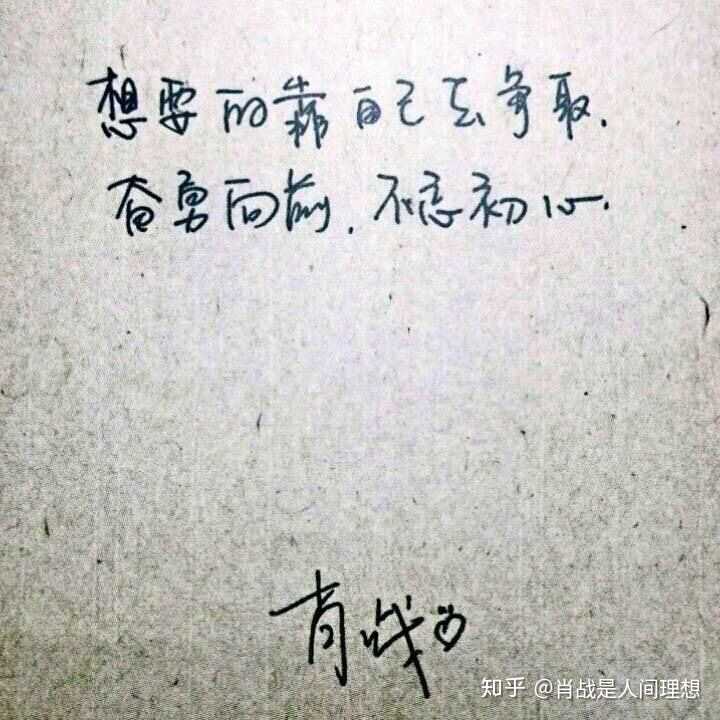 想要的靠自己去争取.
奋勇向前.不忘初心.
肖战
知乎 @肖战是人间理想